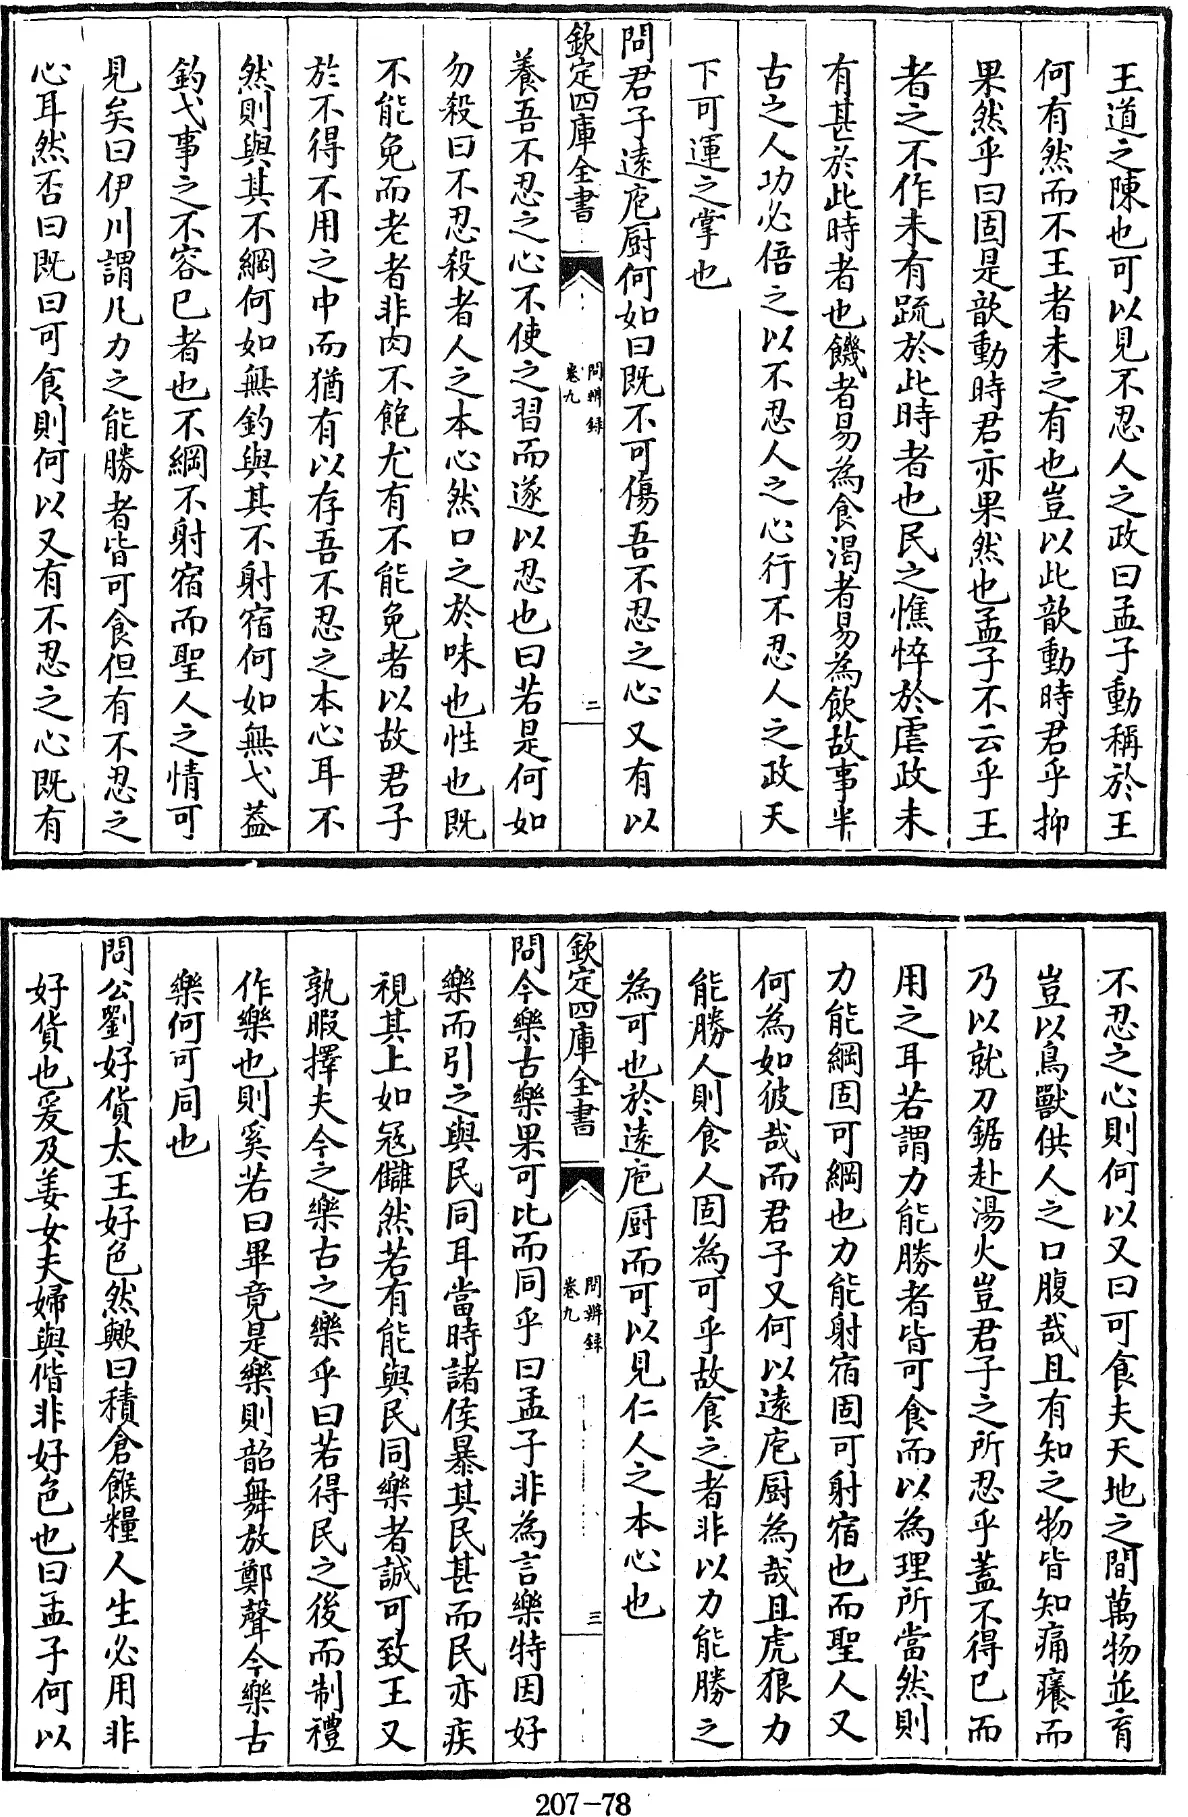 王道之陳也可以見不忍人之政曰孟子動稱於王
何有然而不王者未之有也豈以此歆動時君乎抑
果然乎曰固是歆動時君亦果然也孟子不云乎王
者之不作未有疏於此時者也民之憔悴於虐政未
有甚於此時者也饑者易為食渴者易為飲故事半
古之人功必倍之以不忍人之心行不忍人之政天
下可運之掌也
問君子遠庖厨何如曰既不可傷吾不忍之心又有以
欽定四庫全書
問辨錄
卷九
二
養吾不忍之心不使之習而遂以忍也曰若是何如
勿殺曰不忍殺者人之本心然口之於味也性也既
不能免而老者非肉不飽尤有不能免者以故君子
於不得不用之中而猶有以存吾不忍之本心耳不
然則與其不綱何如無釣與其不射宿何如無弋蓋
釣弋事之不容已者也不綱不射宿而聖人之情可
見矣曰伊川謂凡力之能勝者皆可食但有不忍之
心耳然否曰既曰可食則何以又有不忍之心既有
不忍之心則何以又曰可食夫天地之間萬物並育
豈以鳥獸供人之口腹哉且有知之物皆知痛癢而
乃以就刀鋸赴湯火豈君子之所忍乎蓋不得已而
用之耳若謂力能勝者皆可食而以為理所當然則
力能綱固可綱也力能射宿固可射宿也而聖人又
何為如彼哉而君子又何以遠庖厨為哉且虎狼力
能勝人則食人固為可乎故食之者非以力能勝之
為可也於遠庖厨而可以見仁人之本心也
欽定四庫全書
問辨錄
卷九
三
問今樂古樂果可比而同乎曰孟子非為言樂特因好
樂而引之與民同耳當時諸侯暴其民甚而民亦疾
視其上如寇讎然若有能與民同樂者誠可致王又
孰暇擇夫今之樂古之樂乎曰若得民之後而制禮
作樂也則奚若曰畢竟是樂則韶舞放鄭聲今樂古
樂何可同也
問公劉好貨太王好色然歟曰積倉餱糧人生必用非
好貨也爰及姜女夫婦與偕非好色也曰孟子何以
207-78